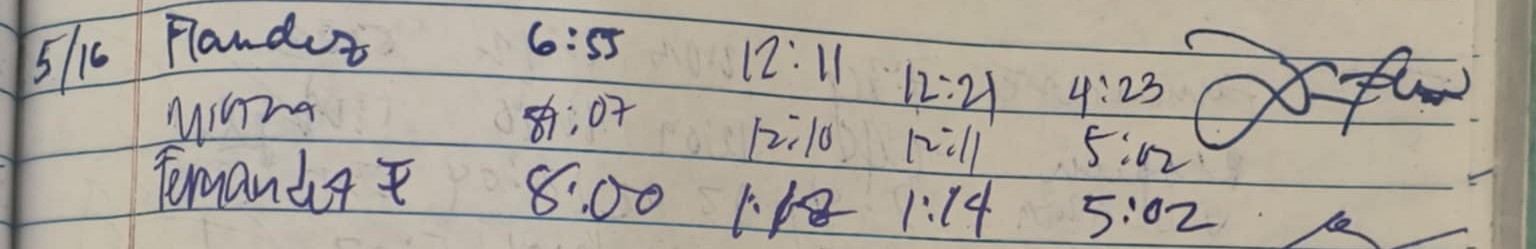 5/16 Flandez 6:55 12:11 12:21 4:23
8:07 12:10 12:11 5:02
Fernandez F 8:00 1:14 5:02